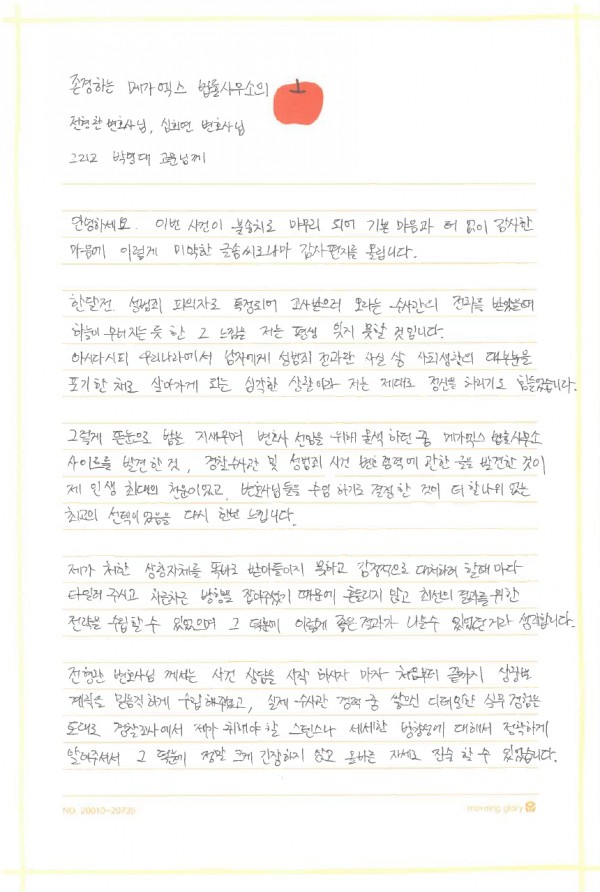 존경하는 메가엑스 법률사무소의
전형환 변호사님, 심희연 변호사님
그리고 박명대 고문님께
안녕하세요. 이번 사건이 불송치로 마무리 되어 기쁜 마음과 더 없이 감사한
마음에 이렇게 미약한 글솜씨로나마 감사편지를 올립니다.
한달전. 성범죄 피의자로 특정되어 조사받으러 오라는 수사관의 전화를 받았을때
하늘이 무너지는 듯 한 그 느낌은 저는 평생 잊지 못할 것입니다.
아시다시피 우리나라에서 남자에게 성범죄 전과란 사실 상 사회생활의 대부분을
포기한 채로 살아가게 되는 심각한 상황이라 저는 제대로 정신을 차리기도 힘들었습니다.
그렇게 뜬눈으로 밤을 지새우며 변호사 선임을 위해 물색 하던 중 메가엑스 법률사무소
사이트를 발견한 것, 경찰수사관 및 성범죄 사건 변호 경력에 관한 글을 발견한 것이
제 인생 최대의 천운이었고, 변호사님들을 수임 하기로 결정 한 것이 더 할나위 없는
최고의 선택이 었음을 다시 한번 느낍니다.
제가 처한 상황자체를 똑바로 받아들이지 못하고 감정적으로 대처하려 할때 마다
타일러 주시고 차근차근 방향을 잡아주셨기 때문에 흔들리지 않고 최선의 결과를 위한
전략을 수립할 수 있었으며 그 덕분에 이렇게 좋은 결과가 나올수 있었던거라 생각합니다.
전형환 변호사님 께서는 사건 상담을 시작 하시자 마자 처음부터 끝까지 상황별
계획을 믿음직하게 수립해주셨고, 실제 수사관 경력 중 쌓으신 디테일한 실무 경험을
토대로 경찰조사에서 제가 취해야 할 스탠스나 세세한 방향성에 대해서 정확하게
알려주셔서 그 덕분에 정말 크게 긴장하지 않고 올바른 자세로 진술 할 수 있었습니다.
NO. 20010-20735
morning glory